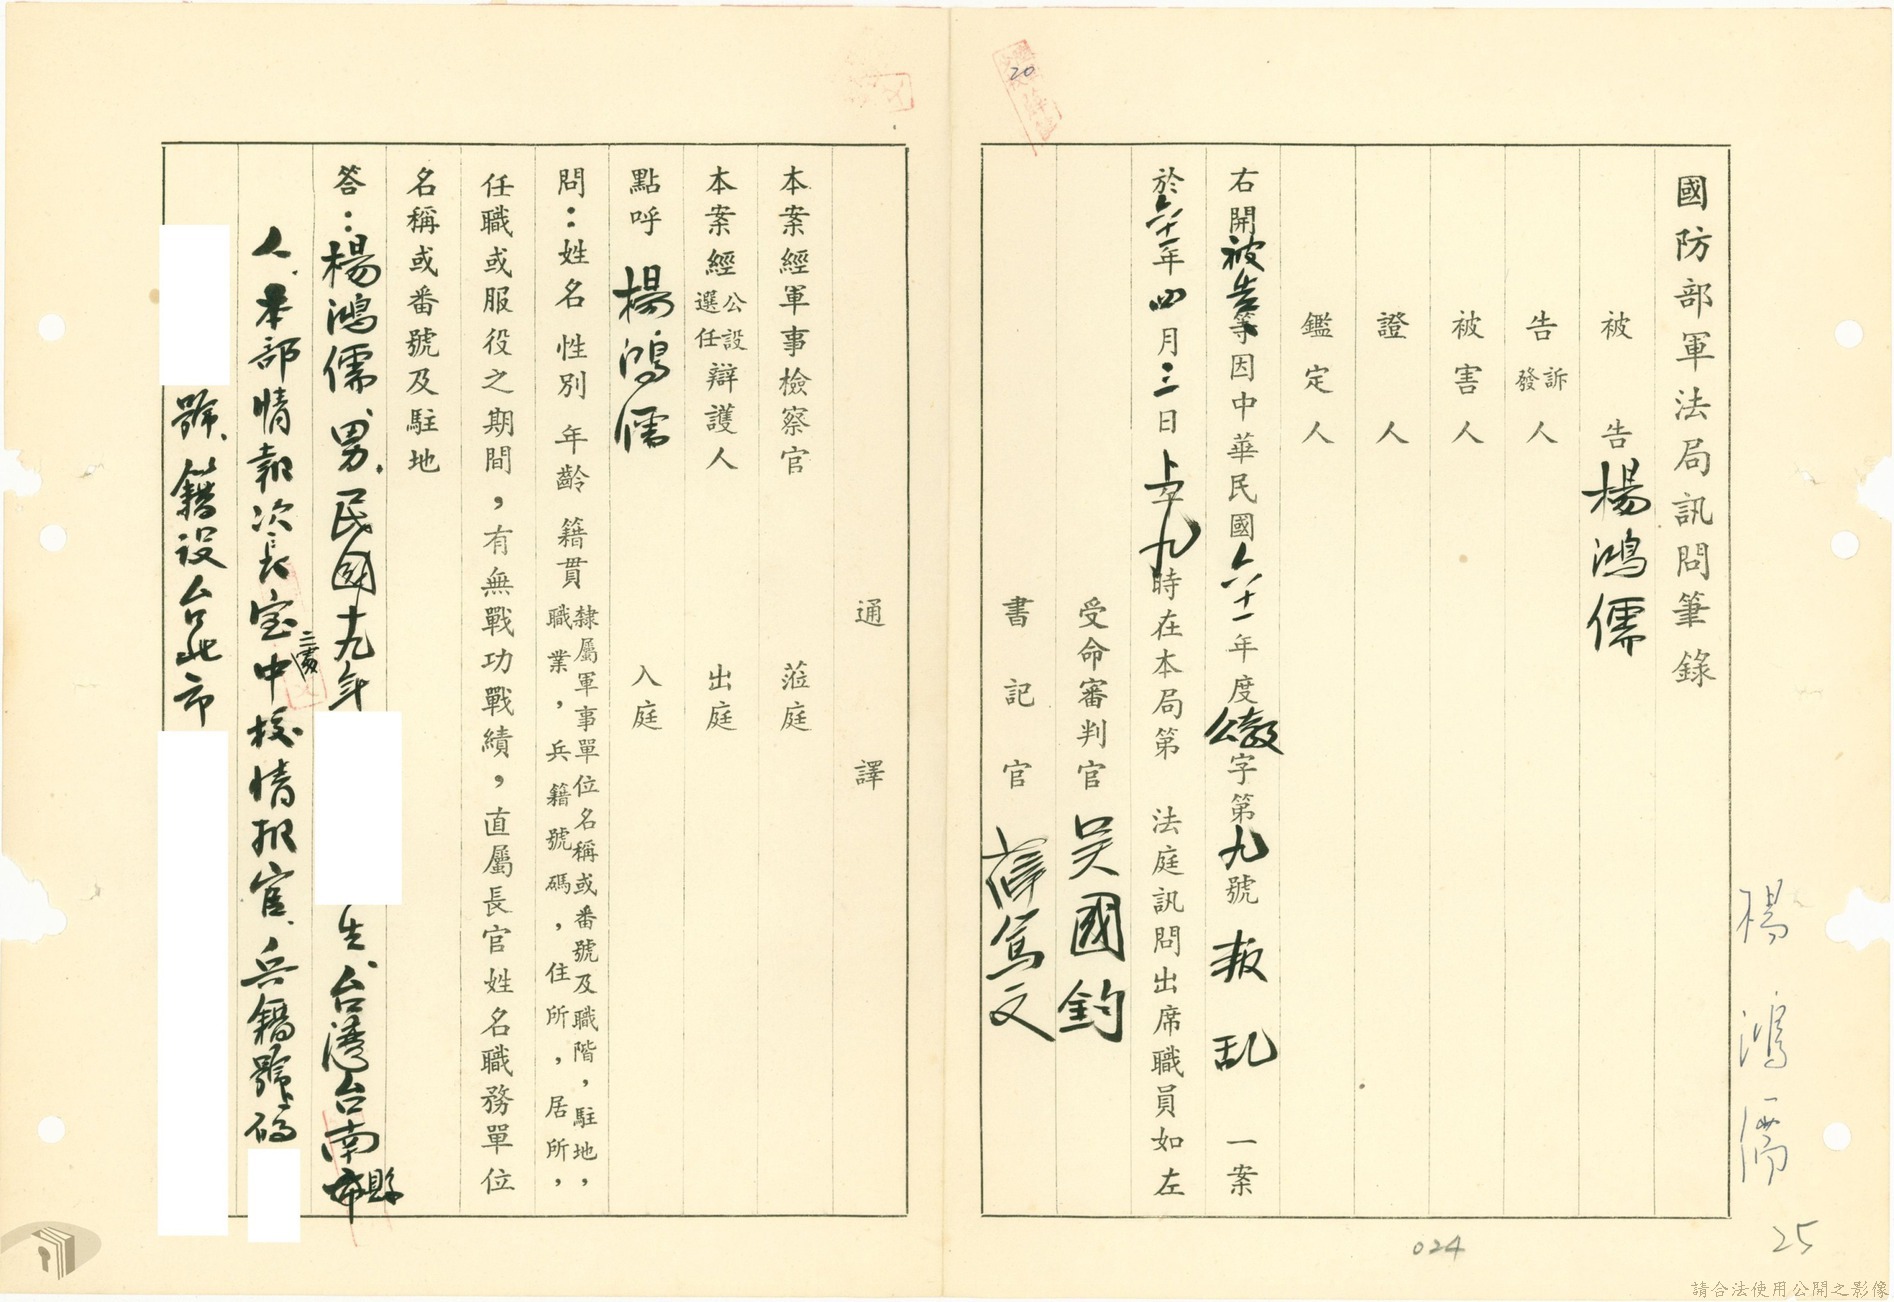 國防部軍法局訊問筆錄
被告 楊鴻儒
告訴發人
被害人
證人
鑑定人
右開被告等因中華民國六十一年度公教字第九號 叛乱 一案
於六十一年四月三日上午九時在本局第 法庭訊問出席職員如左
受命審判官 吳國鈞
書記官 薛篤文
通譯
本案經軍事檢察官 蒞庭
本案經公設選任辯護人 出庭
點呼 楊鴻儒 入庭
問：姓名 性別 年齡 籍貫 隸屬軍事單位名稱或番號及職階，駐地，職業，兵籍號碼，住所，居所，
任職或服役之期間，有無戰功戰績，直屬長官姓名職務單位
名稱或番號及駐地
答：楊鴻儒、男、民國十九年 生、台湾台南縣
人、本部情報次長室中校情报官、兵籍號碼
號、籍設台北市
楊鴻儒
20
024
25
請合法使用公開之影像